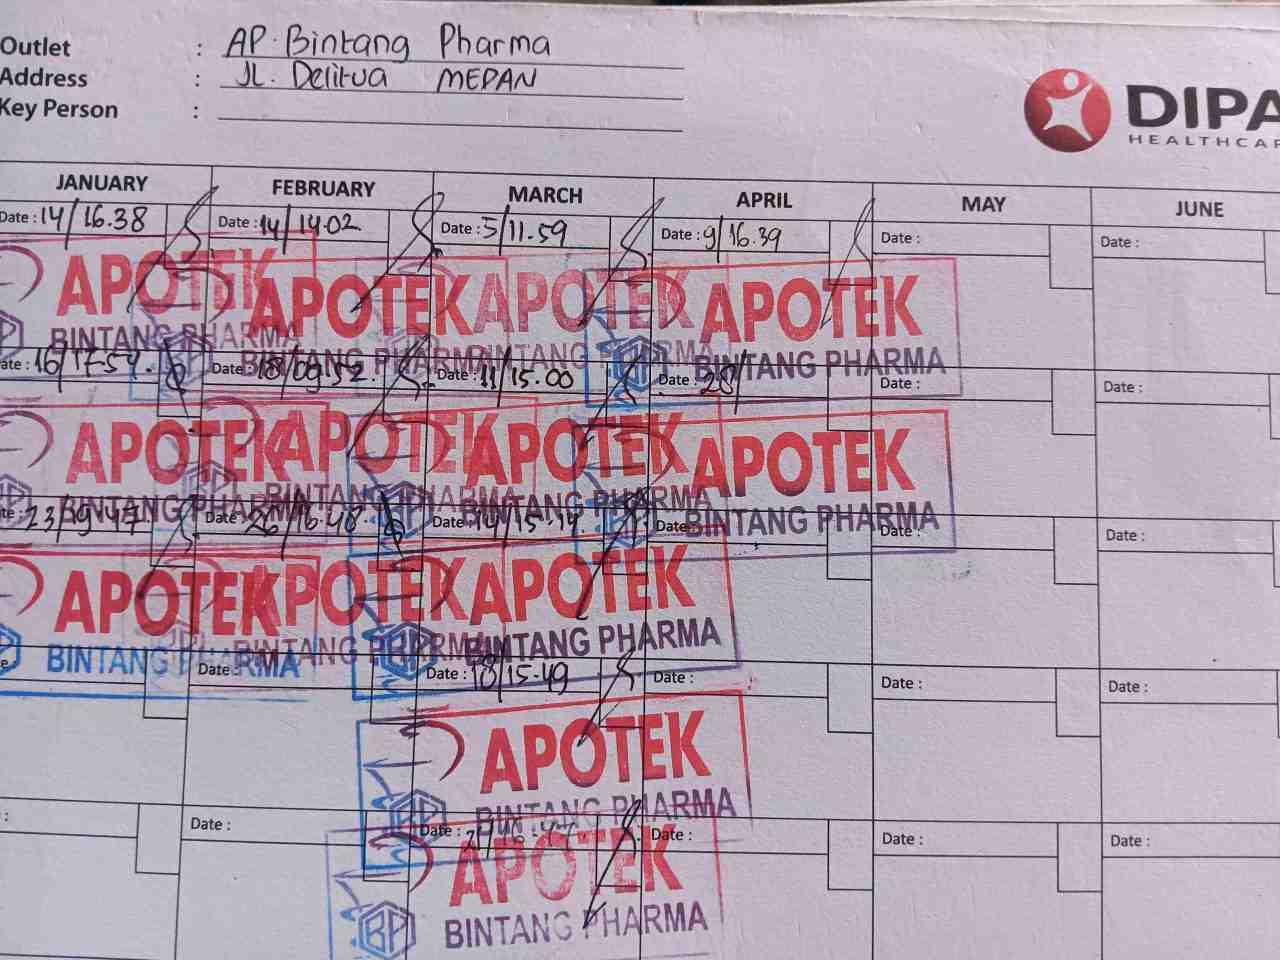 Outlet : AP. Bintang Pharma
Address : JL. Delitua MEDAN
Key Person :
DIPA
HEALTHCAR
JANUARY FEBRUARY MARCH APRIL MAY JUNE
Date : 14/16.38 Date : 14/14.02 Date : 5/11.59 Date : 9/16.39 Date : Date :
APOTEK APOTEK APOTEK APOTEK
BINTANG PHARMA BINTANG PHARMA BINTANG PHARMA BINTANG PHARMA
ate : 16/17.54. Date : 18/09.52. Date : 11/15.00 Date : 28/ Date : Date :
APOTEK APOTEK APOTEK APOTEK
BINTANG PHARMA BINTANG PHARMA BINTANG PHARMA BINTANG PHARMA
te : 23/9.47. Date : 26/16.48 Date : 14/15.14. Date Date : Date :
APOTEK APOTEK APOTEK
BINTANG PHARMA BINTANG PHARMA BINTANG PHARMA
e Date : Date : 18/15.49 Date : Date : Date :
APOTEK
BP BINTANG PHARMA
: Date : Date : Date : Date : Date :
APOTEK
BP BINTANG PHARMA